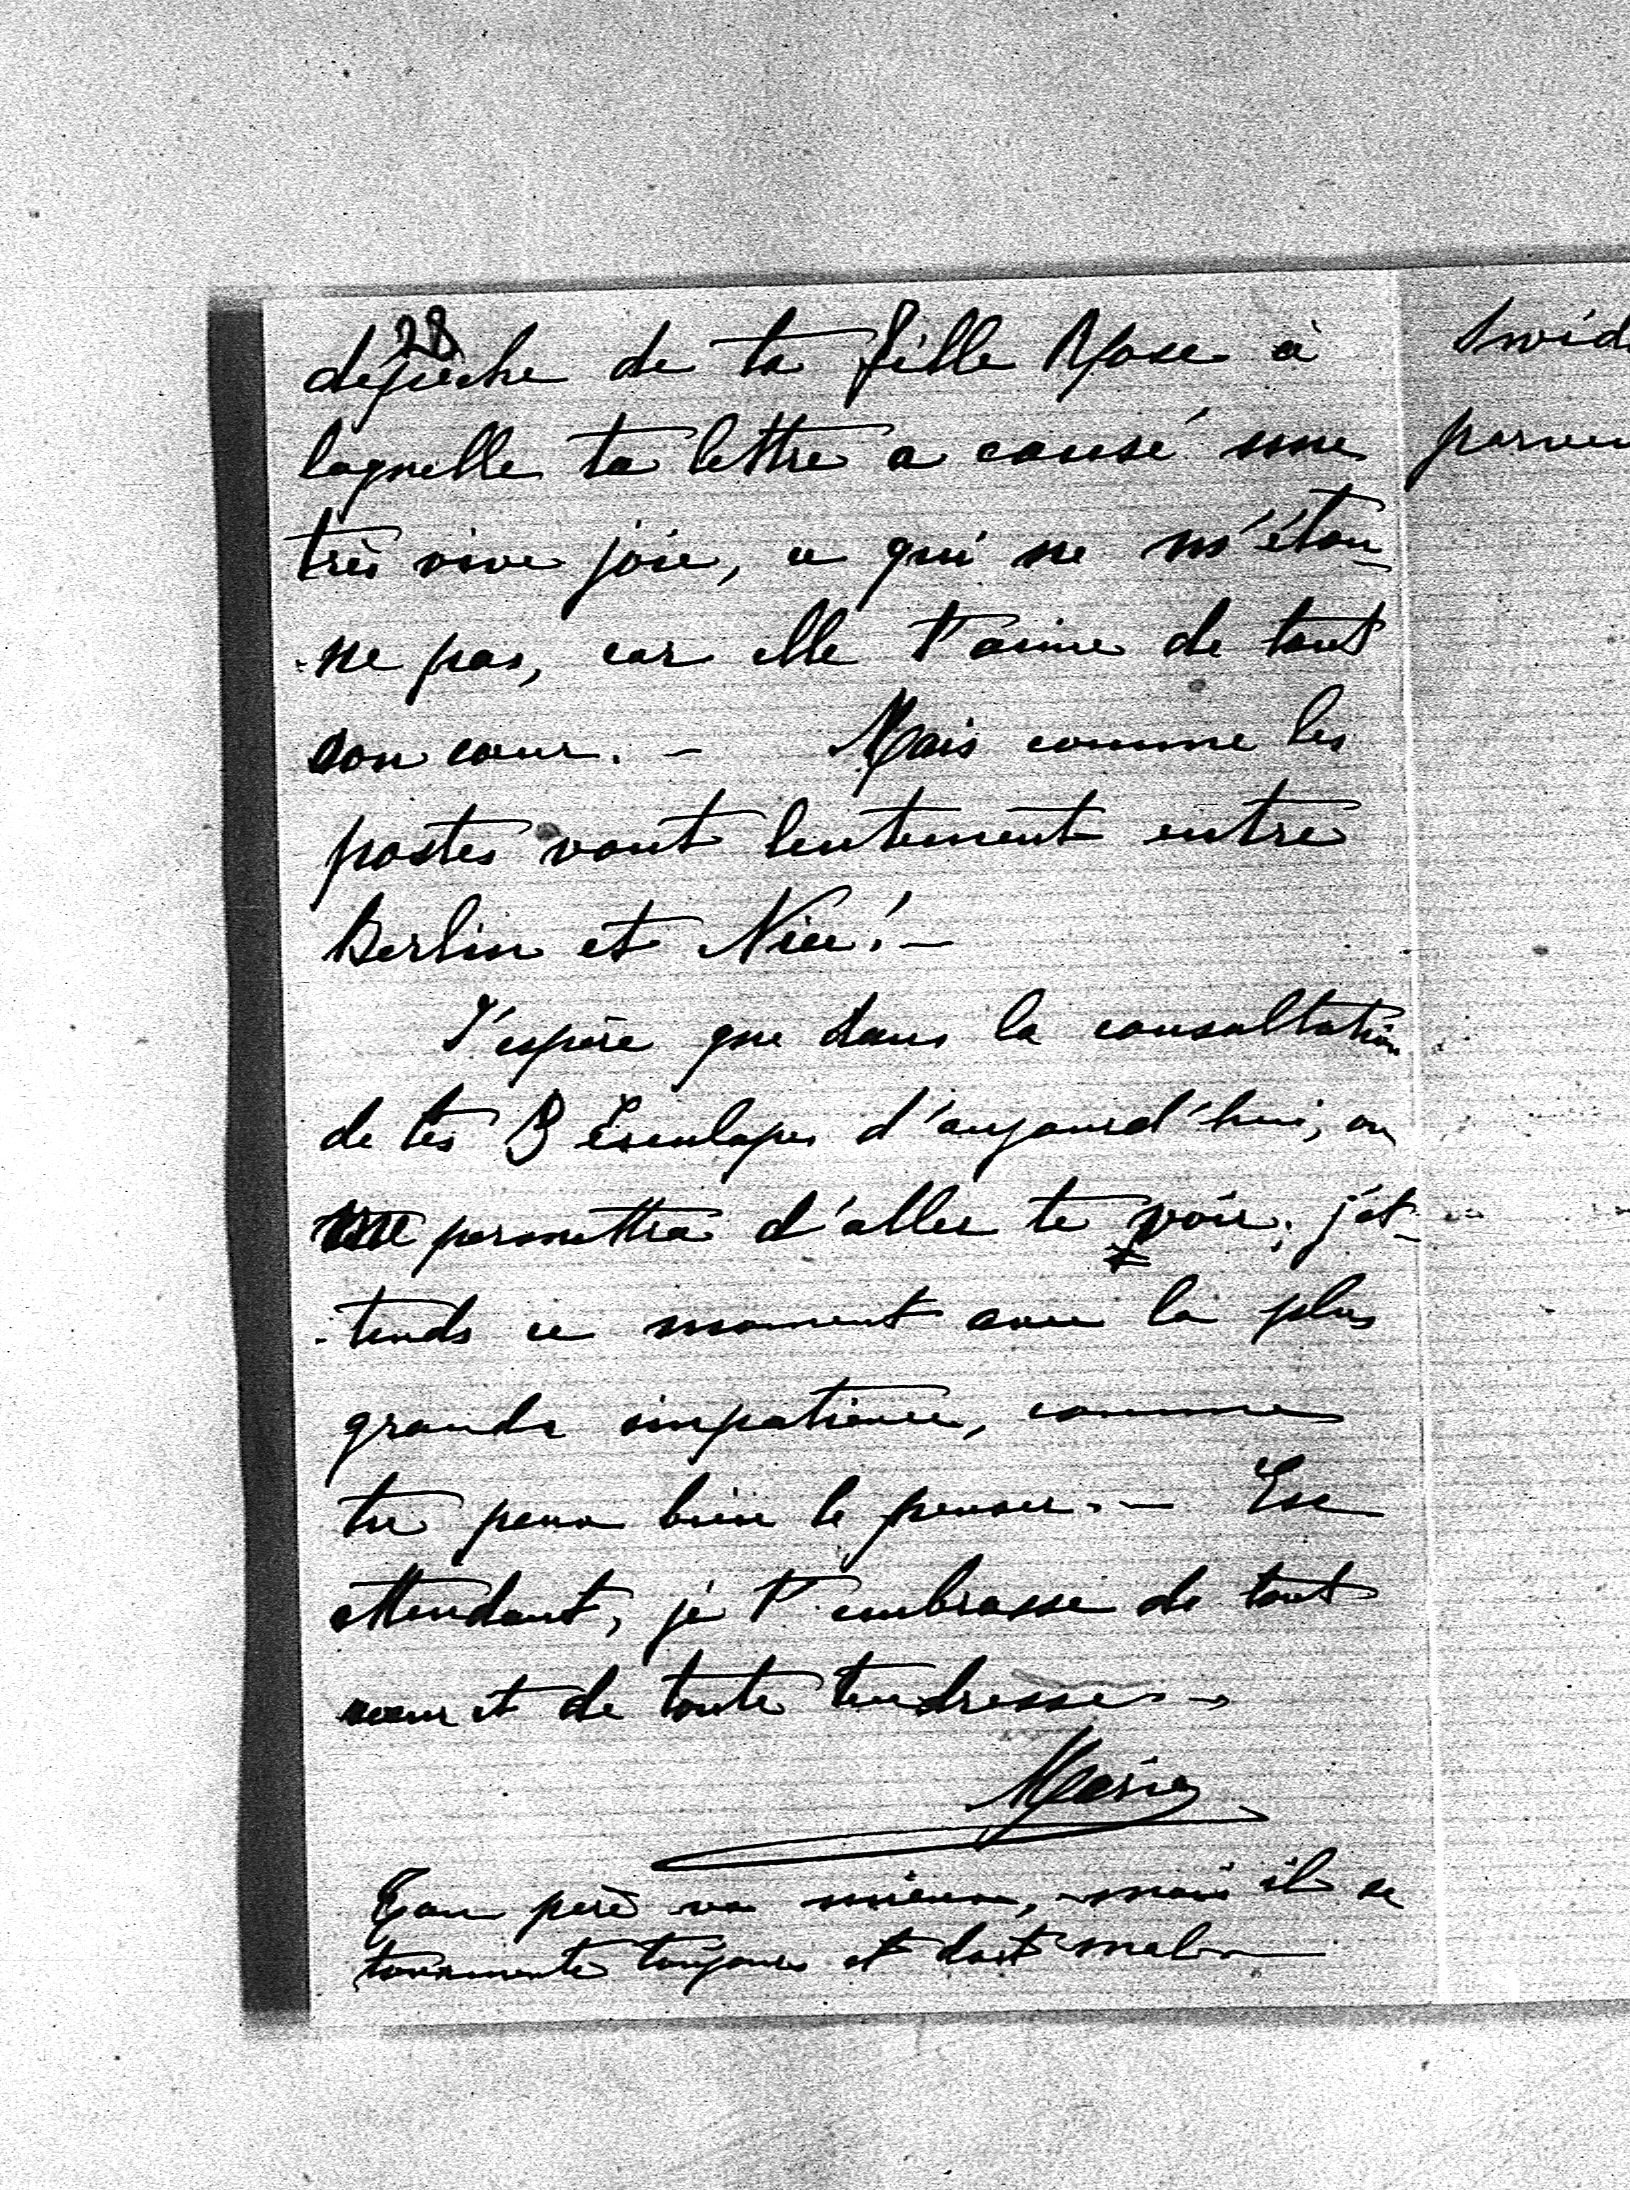 28
dépêche de ta fille Rose à
laquelle ta lettre a causé une
très vive joie, ce qui ne m'éton-
-ne pas, car elle t'aime de tout
son cœur. – Mais comme les
postes vont lentement entre
Berlin et Nice! –
J'espère que dans la consultation
de tes 3 Esculapes d'aujourd'hui, on
me permettra d'aller te voir; j'at-
-tends ce moment avec la plus
grande impatience, comme
tu peux bien le penser. – En
attendant, je t'embrasse de tout
cœur et de toute tendresse. –
Marie
Ton père va mieux, mais il se
tourmente toujours et dort mal –